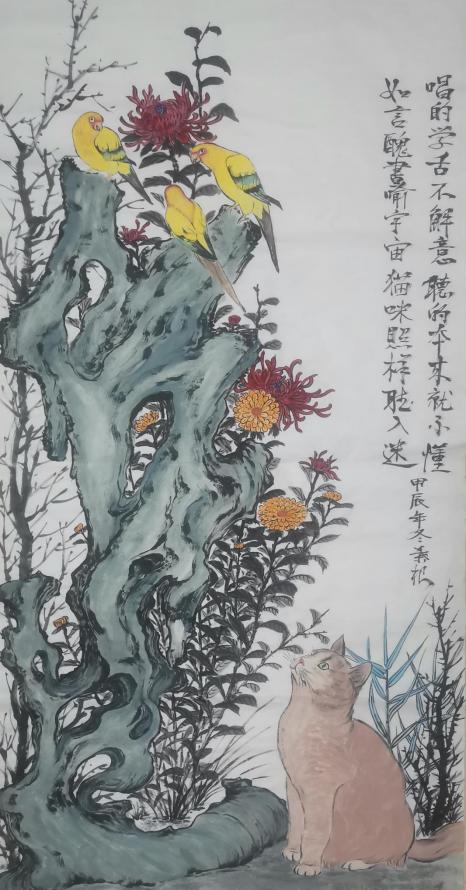 唱的学舌不解意 听的本来就不懂
如言丑书喻宇宙 猫咪照样听入迷
甲辰年冬